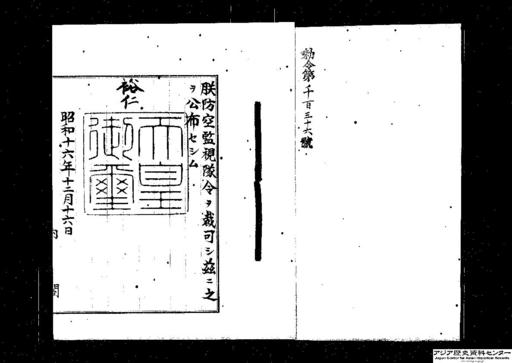 勅令第千百三十六號
朕防空監視隊令ヲ裁可シ茲ニ之
ヲ公布セシム
裕仁
天皇
御璽
昭和十六年十二月十六日
内閣
アジア歴史資料センター
Japan Center for Asian Historical Records